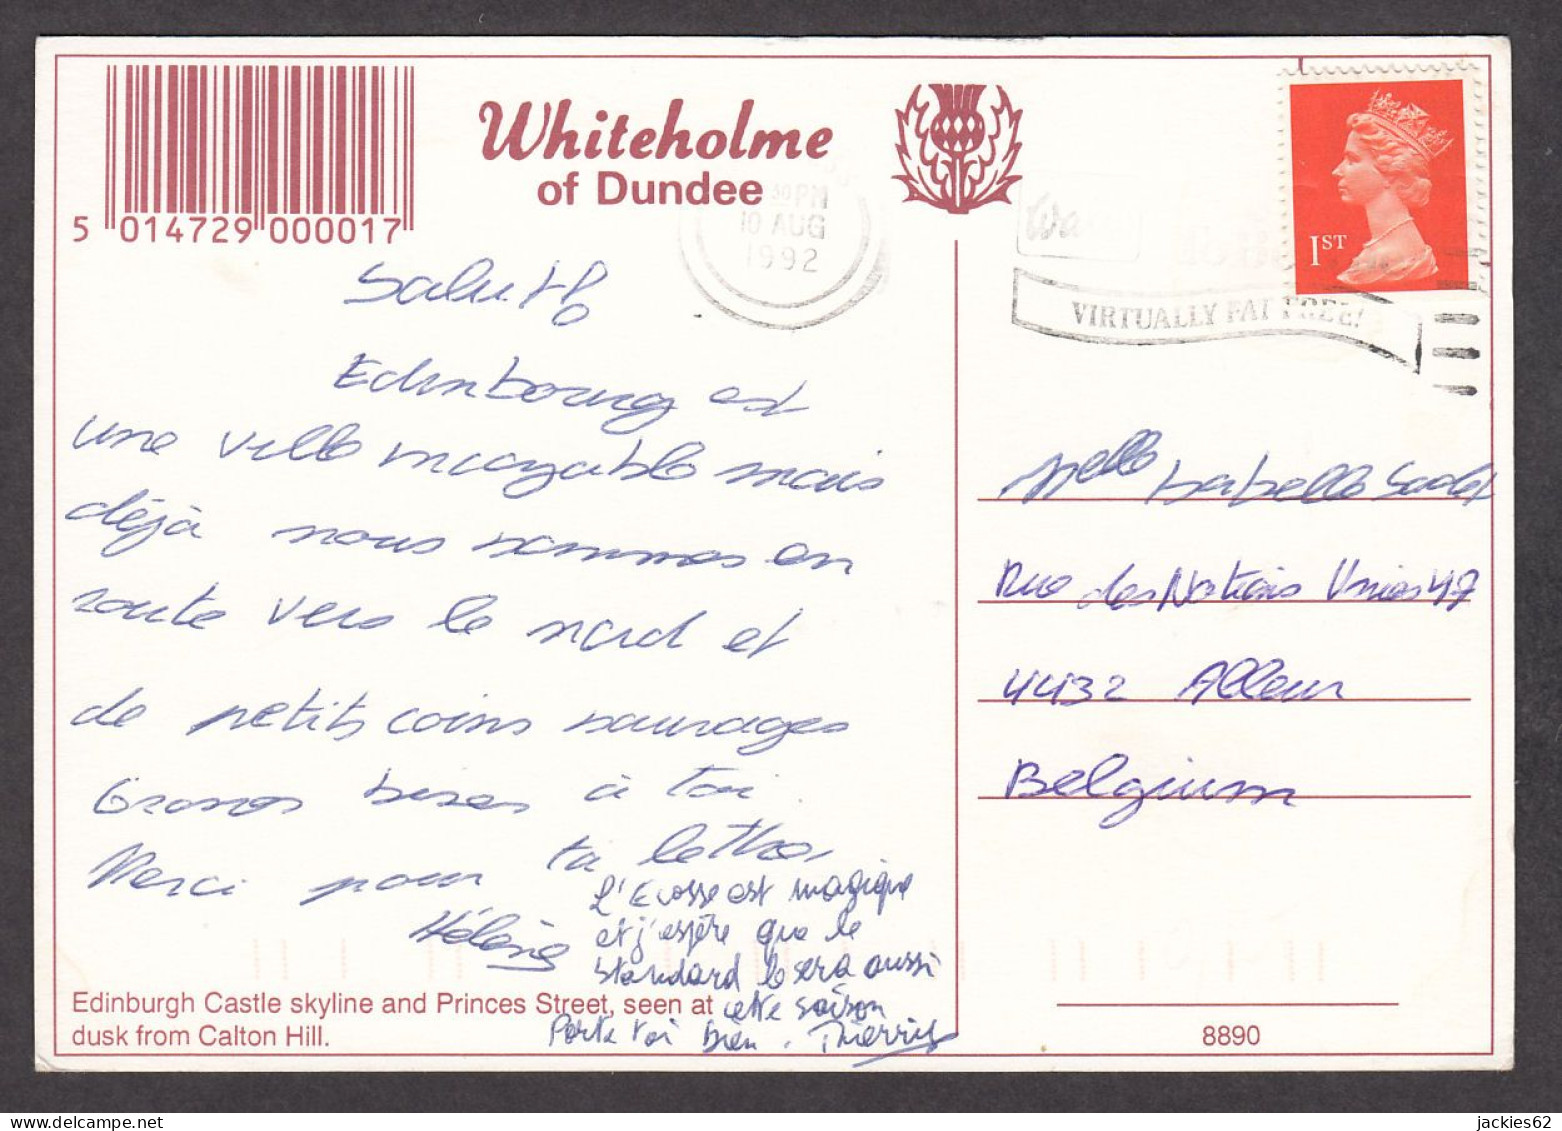 Whiteholme
of Dundee
5 014729 000017
30 PM
10 AUG
1992
1ST
VIRTUALLY FAT FREE!
Salut
Edinbourg est
une ville incroyable mais
déjà nous sommes en
route vers le nord et
de petits coins sauvages
Grosses bises à toi
Merci pour ta lettre,
Hélène
L'Ecosse est magique
et j'espère que le
standard le sera aussi
cette saison
Porte toi bien. Thierry
Edinburgh Castle skyline and Princes Street, seen at
dusk from Calton Hill.
Melle Isabelle
Rue des Nations Unies 47
4432 Alleur
Belgium
8890
jackies62